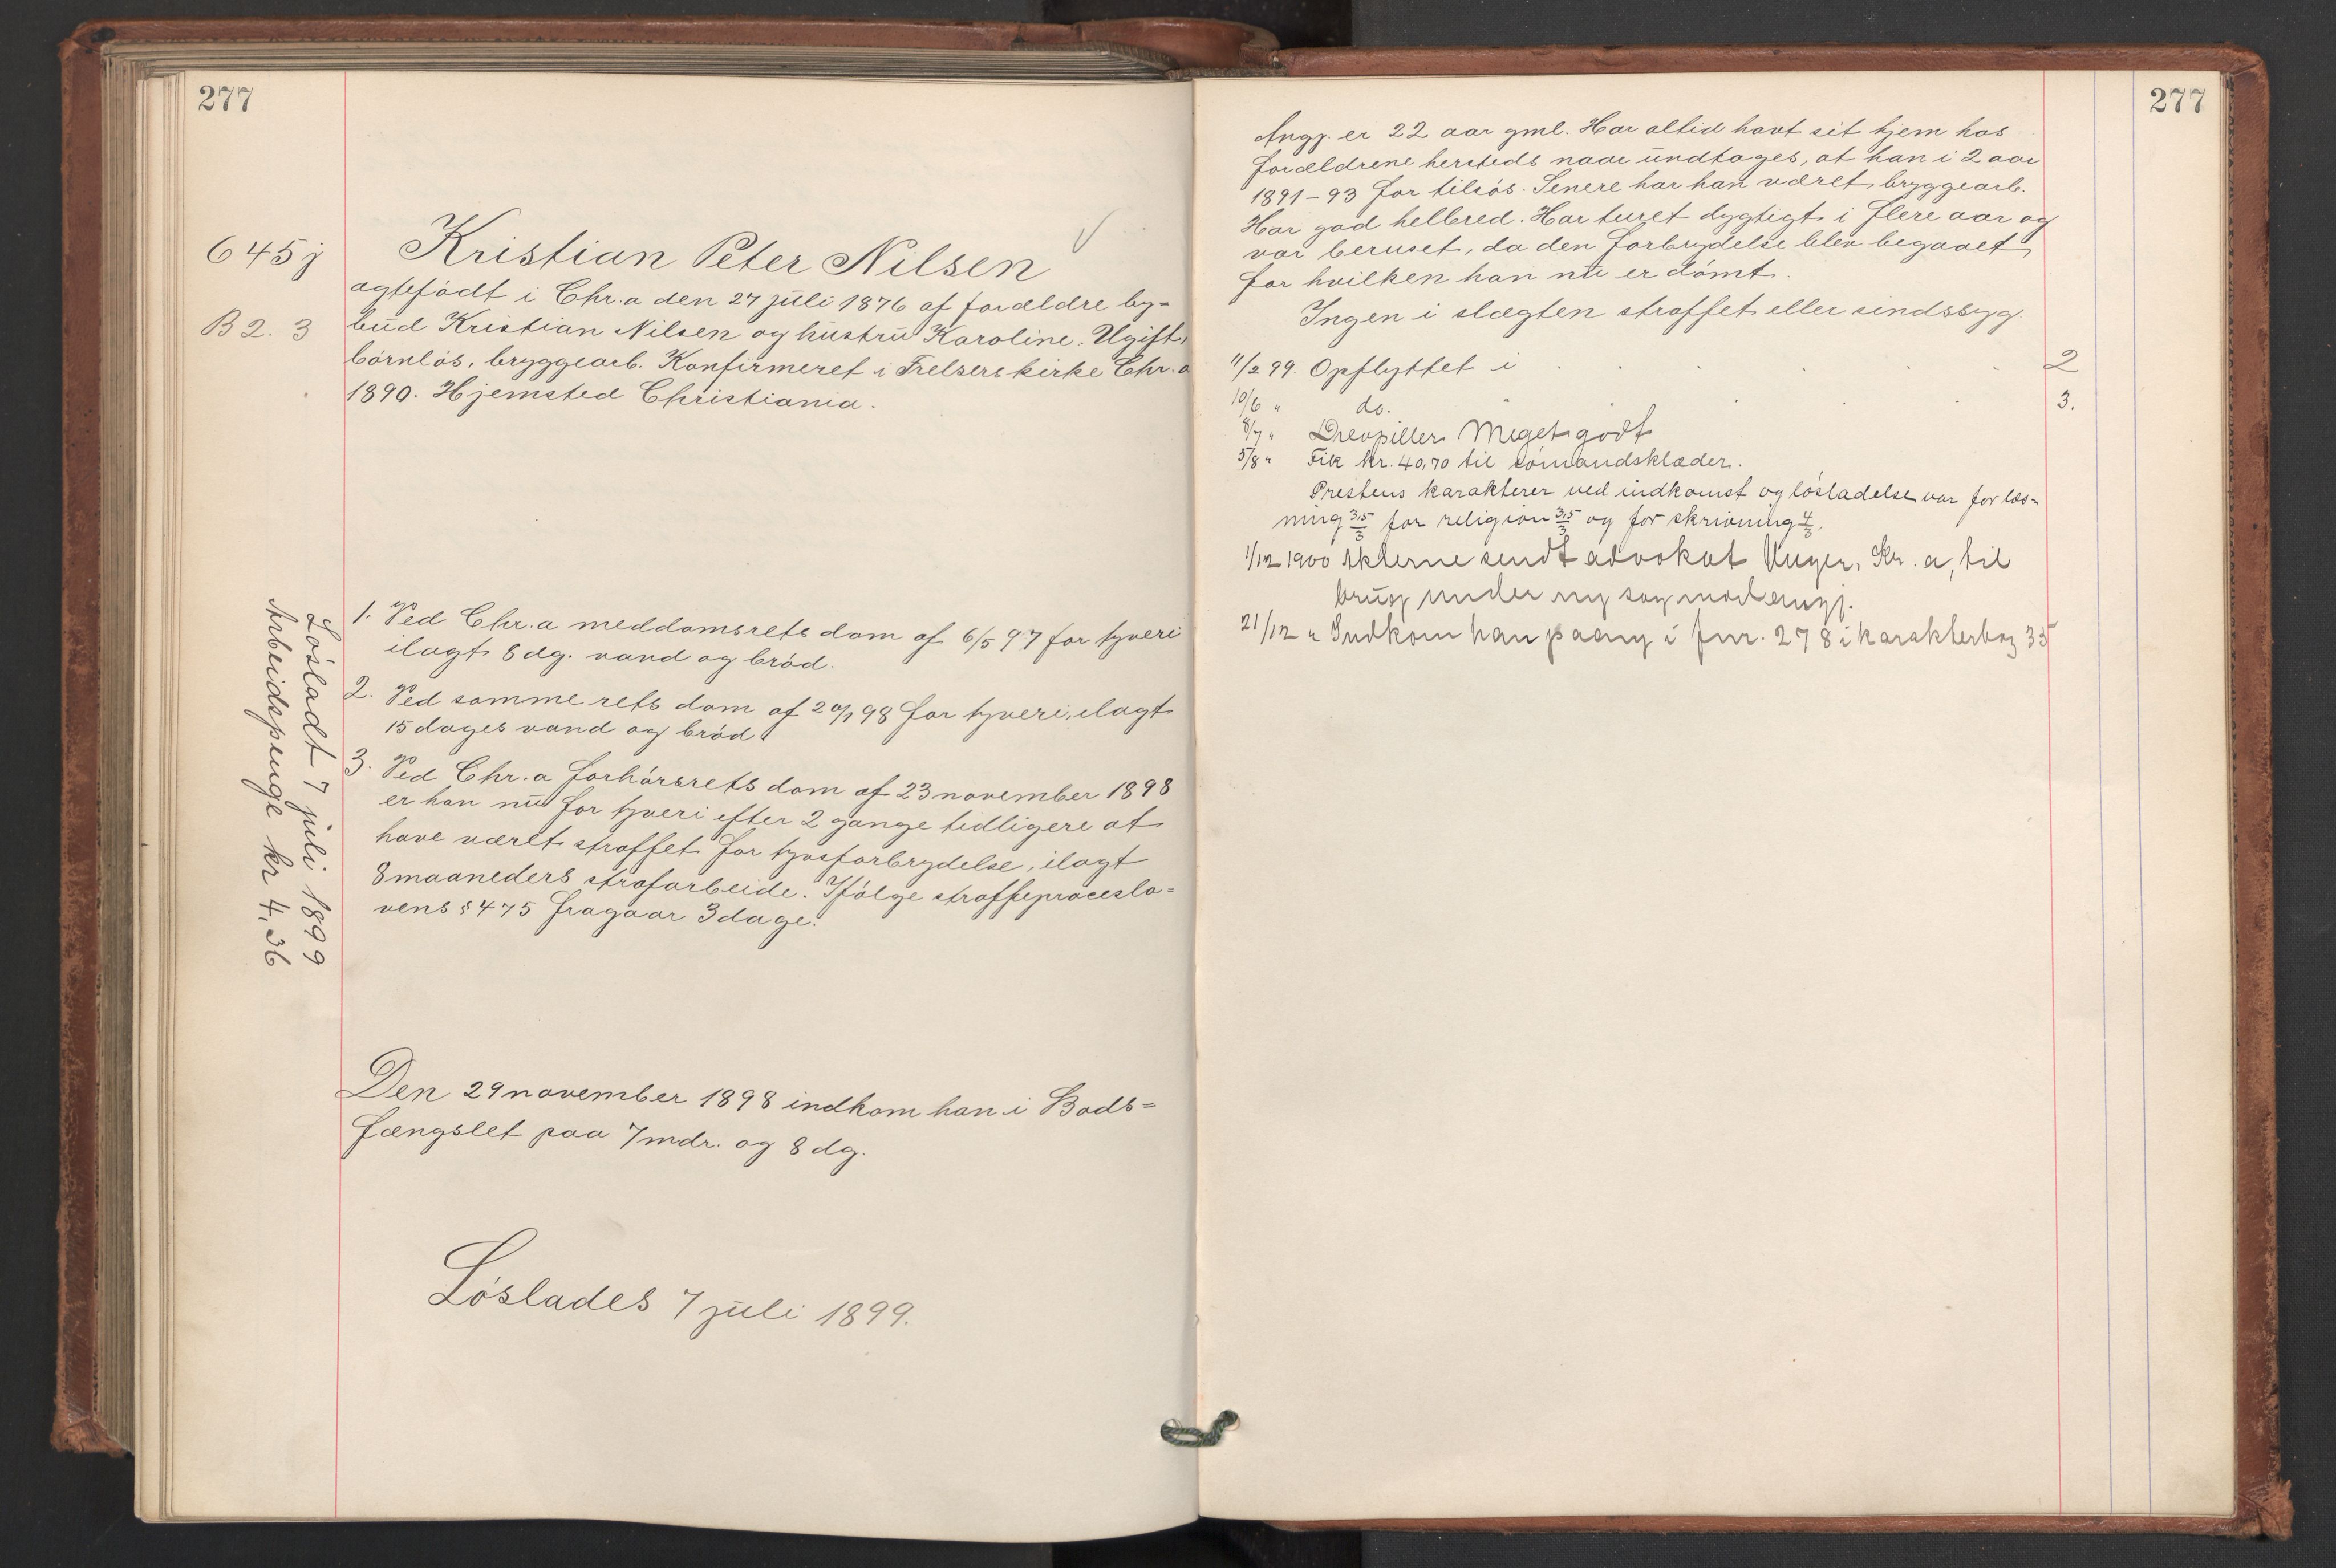 277
645j
B 2. 3
Kristian Peter Nilsen
ægtefødt i Chr.a den 27 juli 1876 af forældre by-
bud Kristian Nilsen og hustru Karoline. Ugift,
børnløs, bryggearb. Konfirmeret i Frelsers kirke Chr.a
1890. Hjemsted Christiania.
1. Ved Chr.a meddomsrets dom af 6/5 97 for tyveri
ilagt 8 dg. vand og brød.
2. Ved samme rets dom af 20/1 98 for tyveri, ilagt
15 dages vand og brød
3. Ved Chr.a forhørsrets dom af 23 november 1898
er han nu for tyveri efter 2 gange tidligere at
have været straffet for tyvsforbrydelse, ilagt
8 maaneders strafarbeide. Ifølge straffeproceslo-
vens § 475 fragaar 3 dage.
Løsladt 7 juli 1899
Arbeidspenge kr 4,36
Den 29 november 1898 indkom han i Bods-
fængslet paa 7 mdr. og 8 dg.
Løslades 7 juli 1899.
277
Angj. er 22 aar gml. Har altid havt sit hjem hos
forældrene hersteds naar undtages, at han i 2 aar
1891-93 for tilsøs. Senere har han været bryggearb.
Har god helbred. Har turet dygtigt i flere aar og
var beruset, da den forbrydelse blev begaaet,
for hvilken han nu er dømt.
Ingen i slægten straffet eller sindssyg.
11/2 99. Opflyttet i 2
10/6 " do. 3.
8/7 " Drevpiller. Meget godt
5/8 " Fik kr. 40,70 til sømandsklæder.
Prestens karakterer ved indkomst og løsladelse var for læs-
ning 3,5/3 for religion 3,5/3 og for skrivning 4/3.
1/12 1900 Akterne sendt advokat Kr.a, til
brug under ny sag mod angj.
21/12 " Indkom han paany i fnr. 278 i karakterbog 35